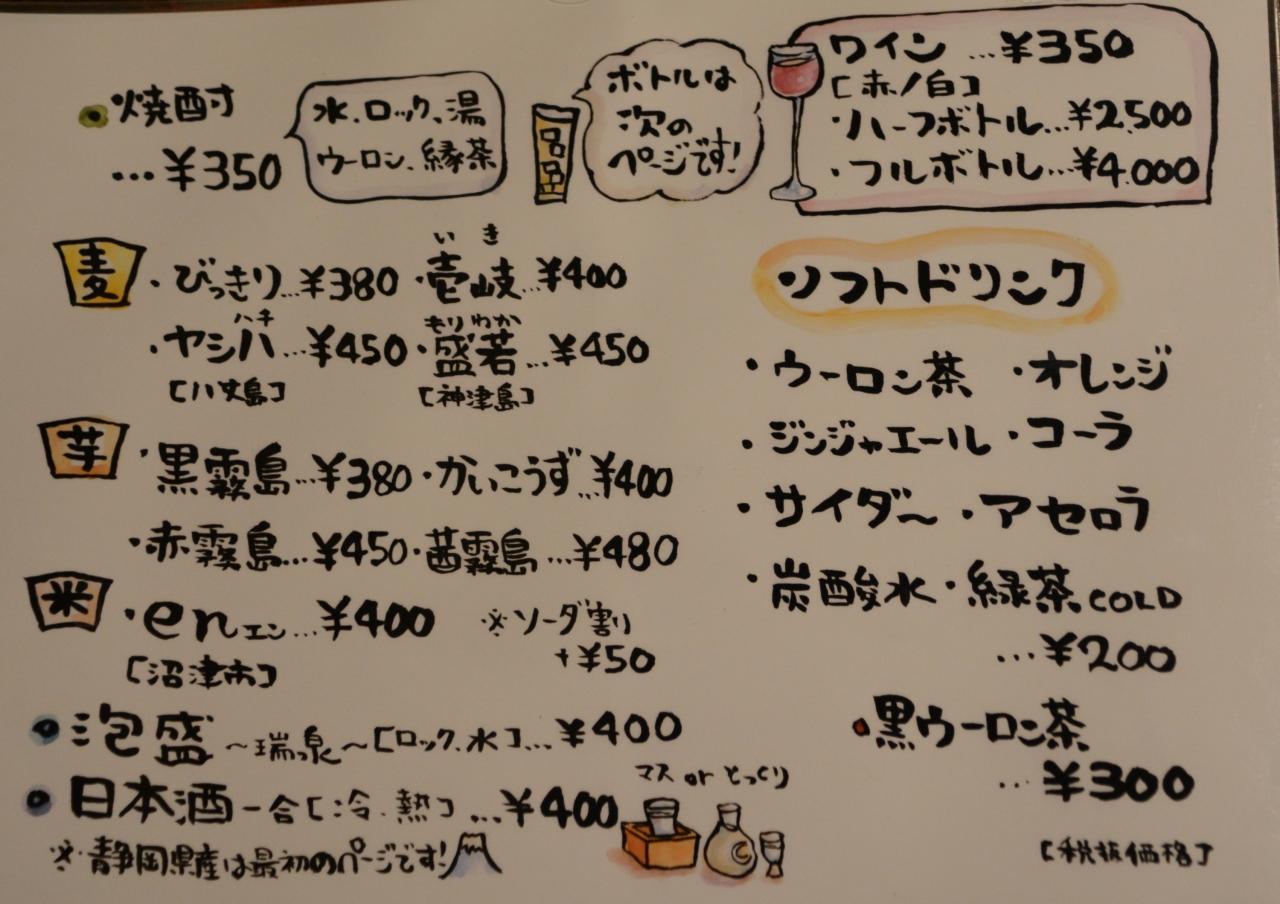 焼酎
…¥350
水、ロック、湯
ウーロン、緑茶
ボトルは
次の
ページです!
ワイン …¥350
[赤/白]
・ハーフボトル…¥2,500
・フルボトル…¥4,000
麦
・びっきり…¥380
いき
・壱岐…¥400
ハチ
・ヤシハ…¥450
[八丈島]
もりわか
・盛若…¥450
[神津島]
芋
・黒霧島…¥380 ・かいこうず…¥400
・赤霧島…¥450 ・茜霧島…¥480
米
・enエン…¥400
[沼津市]
※ソーダ割り
+¥50
泡盛 〜瑞泉〜[ロック、水]…¥400
日本酒 一合[冷、熱]…¥400
マス or とっくり
※静岡県産は最初のページです!
ソフトドリンク
・ウーロン茶 ・オレンジ
・ジンジャエール ・コーラ
・サイダー ・アセロラ
・炭酸水 ・緑茶COLD
…¥200
黒ウーロン茶
…¥300
[税抜価格]